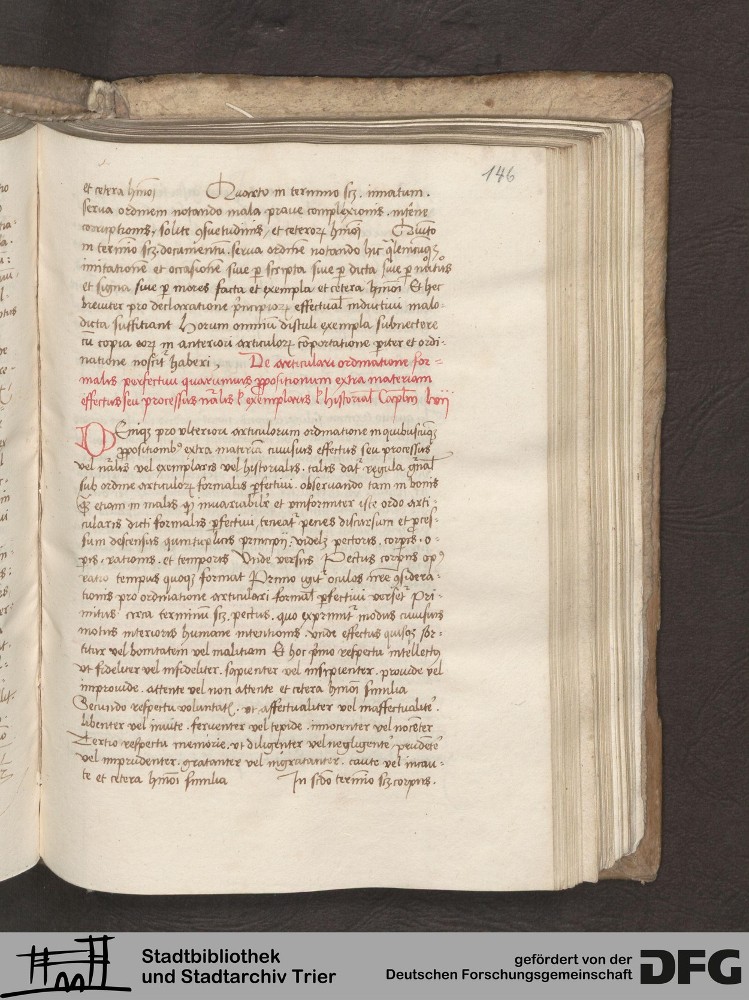 146
et cetera hmoi Quarto in termino scz. innatum.
serva ordinem notando mala. prave complexionis. insene
corruptionis, solite ꝯsuetudinis, et ceteroꝝ hmoi Quito
in termio scz. documentu. serva ordine notando hic qlemcuqꝫ
imitationem et occasione sive ꝑ scripta sive ꝑ dicta sive ꝑ
et signa sive ꝑ mores facta et exempla et cetera hmoi Et hec
breviter pro declaratione pncipioꝝ effectual inductivi malo-
dicta suffitiant Horum omniu distuli exempla subnectere
cu copia eoꝝ in anteriori articuloꝝ coportatione ꝑiter et ordi-
natione noscit haberi. De articulari ordinatione for=
malis perfectivi quarumvis ꝓpositionum extra materiam
effectus seu processus nalis l exemplaris l historial Caplm lvij
Deniqꝫ pro ulteriori articulorum ordinatione in quibuscuqꝫ
ꝓpositionibꝰ extra materia cuiusvis effectus seu processus
vel nalis vel exemplaris vel historialis. talis dat regula gnal
sub ordine articuloꝝ formalis ꝑfectivi. observando tam in bonis
ꝙ etiam in malis ꝙ invariabilr et uniformiter iste ordo arti-
cularis dicti formalis ꝑfectivi, teneat penes discursum et ꝓces-
sum descensus quintuplicis principij, videlꝫ pectoris, corpis, o-
pis, rationis. et temporis Unde versus Pectus corpus opꝰ
ratio tempus quoqꝫ format Primo igit oculos ꝯsidera-
tionis pro ordinatione articulari formal ꝑfectivi verset Pri-
mitus circa terminu scz. pectus. quo exprimit modus cuiusvis
motus interioris humane intentionis. unde effectus quisqꝫ sor-
titur vel bonitatem vel malitiam Et hoc pmo respectu intellectus
ut fideliter vel infideliter. sapienter vel insipienter. provide vel
improvide. attente vel non attente et cetera hmoi similia
Secundo respectu voluntatꝭ. ut affectualiter vel inaffectualite.
libenter vel invite. ferventer vel tepide. innocenter vel nocenter
Tertio respectu memorie. ut diligenter vel negligente, prudente
vel imprudenter. gratanter vel ingratanter. caute vel incau-
te et cetera hmoi similia In scdo termio scz corpus.
Stadtbibliothek
und Stadtarchiv Trier
gefördert von der
Deutschen Forschungsgemeinschaft
DFG